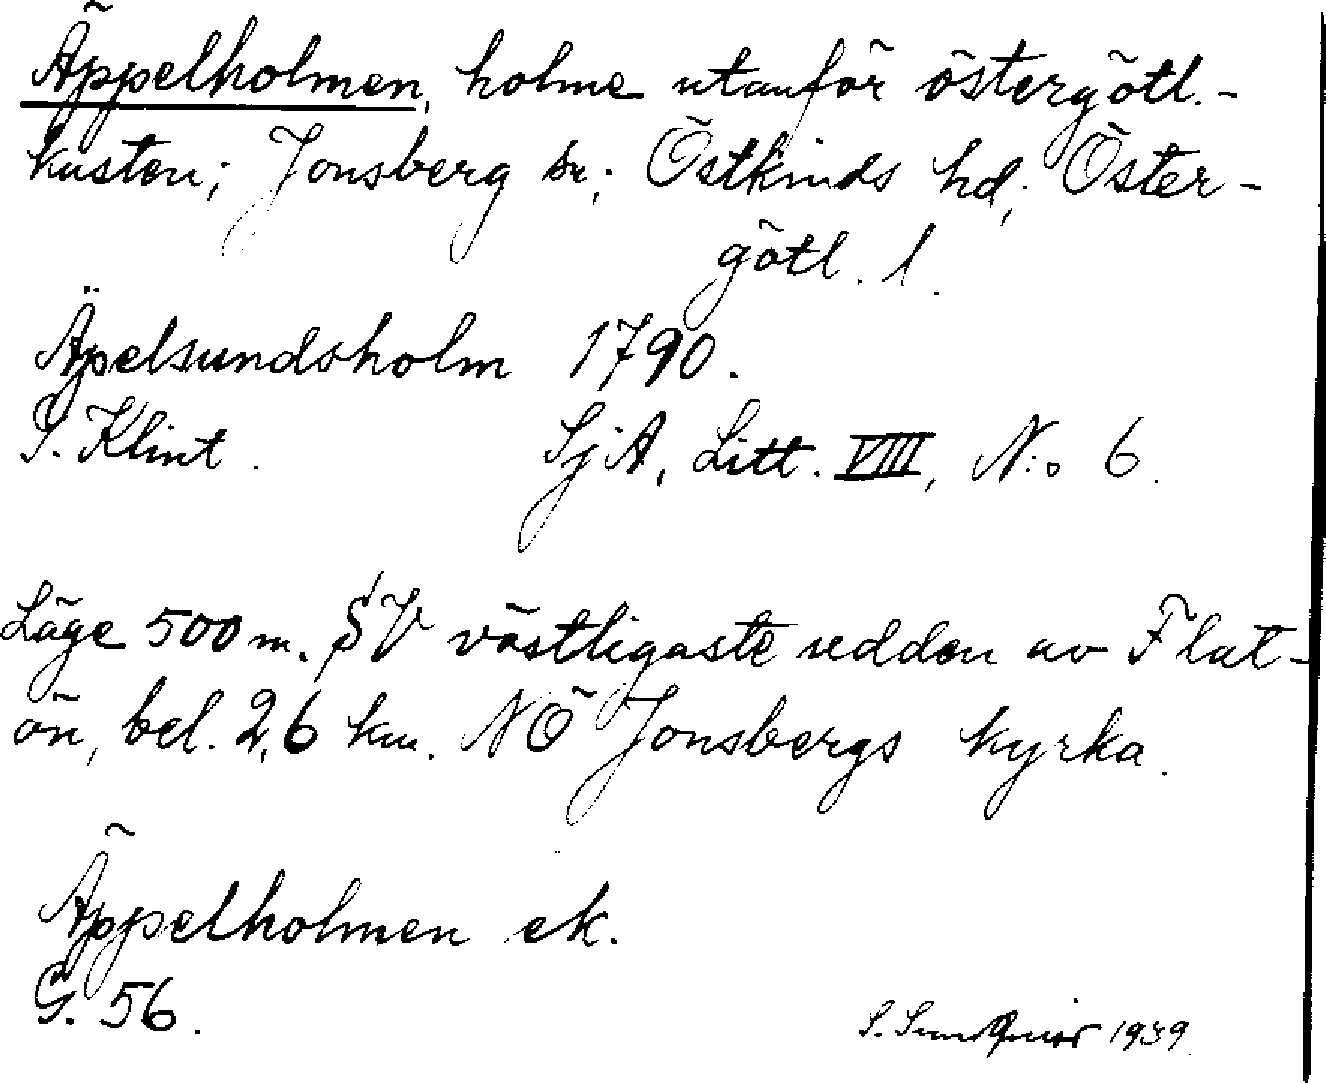 Äppelholmen, holme utanför östergötl.-
kusten; Jonsberg sn; Östkinds hd; Öster-
götl. l.
Äpelsundsholm 1790.
G. Klint. SjA, Litt. VIII, N:o 6.
Läge 500 m. SV västligaste udden av Flat-
ön, bel. 2,6 km. NÖ Jonsbergs kyrka.
Äppelholmen ek.
G. 56.
S. 1939.